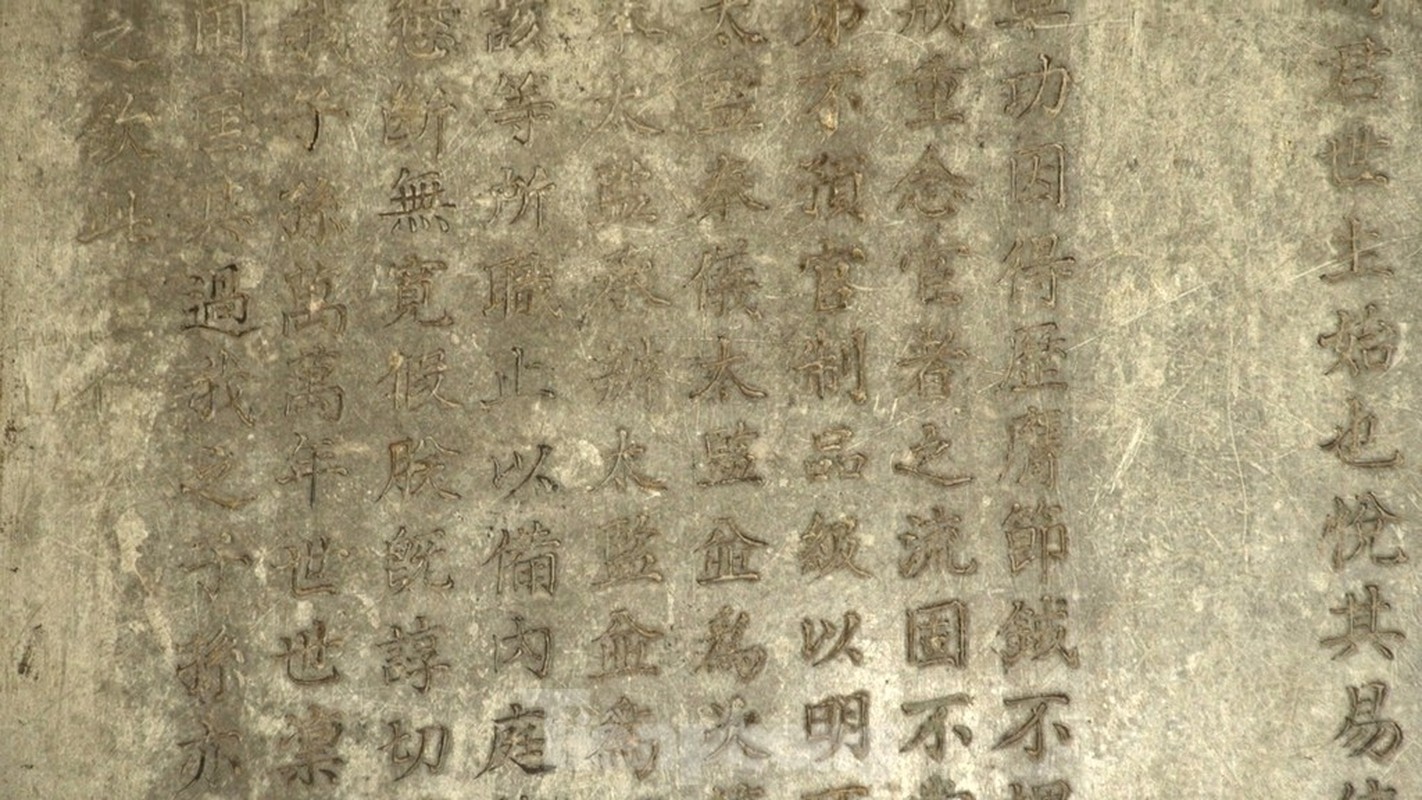 君世上始也悅其易
功因得歷膺節鉞不
戒重念官者之流固不
弟不預官制品級以明
太監奉儀太監並為次
太監承辦太監並為
該等所職止以備內庭
懲斷無寬假朕既諄切
子孫萬萬年世世禀
聞匡其過我之子孫亦
之欽此